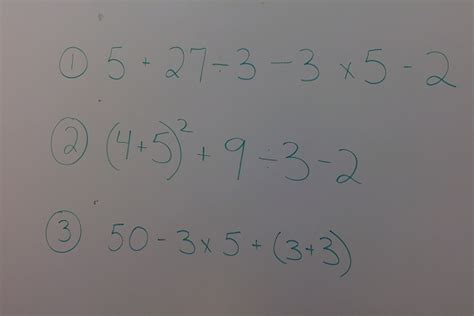 ① 5 + 27 ÷ 3 - 3 x 5 - 2
② (4+5)² + 9 ÷ 3 - 2
③ 50 - 3 x 5 + (3+3)